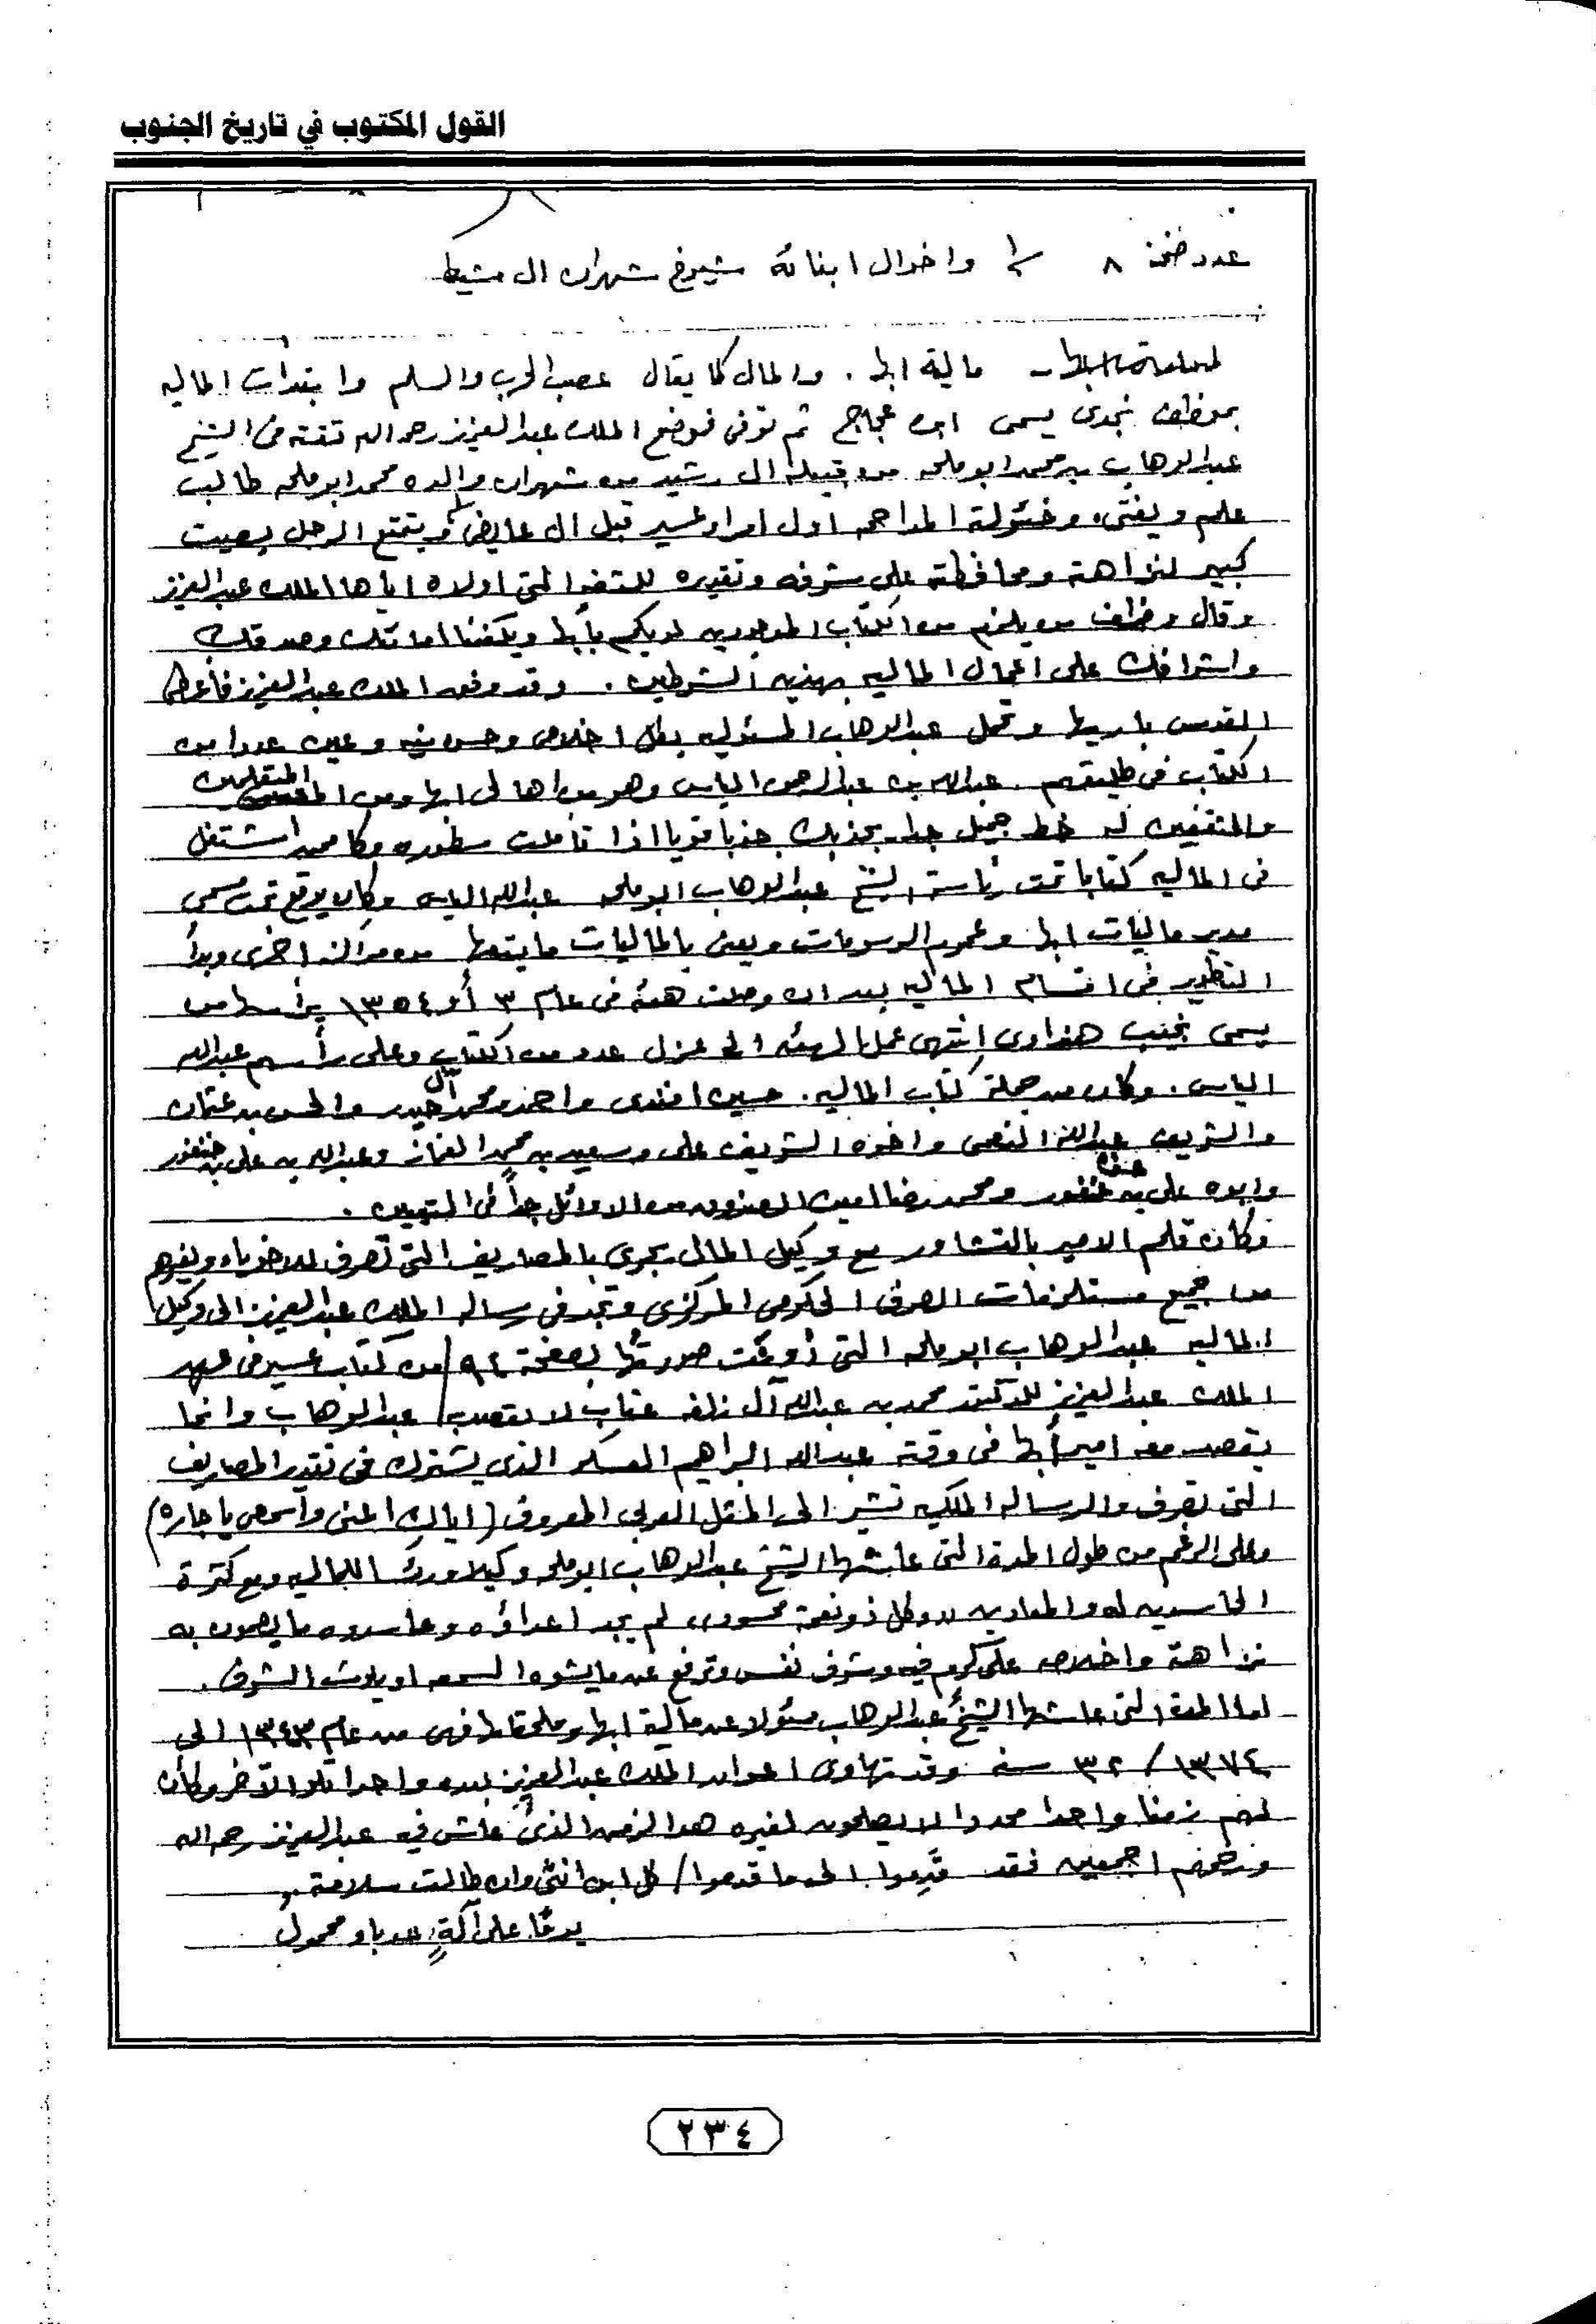 القول المكتوب في تاريخ الجنوب
عدد صفحة ٨ واخوال ابنائه شيوخ شهران ال مشيط
مالية ابها . والمال كما يقال عصب الحرب والسلم وابتدات الماليه
بموظف نجدى يسمى ابن عجاج ثم توفى فوضع الملك عبدالعزيز رحمه الله ثقته فى الشيخ
عبدالوهاب بن محمد ابو ملحه من قبيلة ال رشيد من شهران والده محمد ابو ملحه طالب
علم ويفتى، وخئولته المداحمه اول امراء عسير قبل ال عايض ويتمتع الرجل بصيت
كبير لنزاهته ومحافظته على شرفه وتقديره للثقه التى اولاه اياها الملك عبدالعزيز
وقال وظف من يلزم من الكتاب الموجودين لديكم بأبها ويكفينا امانتك وصدقك
واشرافك على اعمال الماليه بهذين الشرطين . وقد وفق الملك عبدالعزيز فأعطى
القوس باريها وتحمل عبدالوهاب المسئوليه بكل اخلاص وحسن نيه وعين عددا من
الكتاب فى طليعتهم . عبدالله بن عبدالرحمن الياس وهو من اهالى ابها ومن المتعلمين
والمثقفين له خط جميل جدا يجذبك جذبا قويا اذا تأملت سطوره وكا ممن اشتغل
فى الماليه كتابا تحت رئاسة الشيخ عبدالوهاب ابو ملحه عبدالله الياس وكان يوقع تحت مسمى
مدير ماليات ابها وعموم الرسومات ويعنى بالماليات ما يتبعها من مراكز اخرى وبدأ
التطوير فى اقسام الماليه بعد ان وصلت هيئه فى عام ٣ أو ١٣٥٤ يرأسها من
يسمى نجيب هنداوى انتهى عمل الهيئه الى عزل عدد من الكتاب وعلى رأسهم عبدالله
الياس . وكان من جملة كتاب الماليه . حسين افندى واحمد ومحمد آل حيدر والحسن بن عثمان
والشريف عبدالله النعمى واخوه الشريف على وسعيد بن محمد الغماز وعبدالله بن على بن خنفور
وابوه على بن خنفور ومحمد رضا امين الصندوق من الاوائل جدا فى التعيين .
وكان قلم الامير بالتشاور مع وكيل المال يجرى بالمصاريف التى تصرف للاخوياء وغيرهم
من جميع مستلزمات الصرف الحكومى المركزى وتجد فى رساله الملك عبدالعزيز الى وكيل
الماليه عبدالوهاب ابو ملحه التى صورتها بصفحة ٩٤ من كتاب عسير فى عهد
الملك عبدالعزيز للدكتور محمد بن عبدالله آل زلفه عتاب لا يقصد عبدالوهاب وانما
يقصد معه امير أبها فى وقته عبدالله ابراهيم العسكر الذى يشترك فى تقدير المصاريف
التى تصرف والرساله الملكيه تشير الى المثل العربى المعروف (اياك اعنى واسمعى يا جاره)
وعلى الرغم من طول المدة التى عاشها الشيخ عبدالوهاب ابو ملحه وكيلا ورئيسا للماليه ومع كثرة
الحاسدين له والمعادين وكل ذو نعمة محسود، لم يجد اعداؤه وحاسدوه ما يصمون به
نزاهته واخلاصه على كرم فيه وشرف نفس وترفع عن ما يشوه السمعه او يلوث الشرف .
اما المدة التى عاشها الشيخ عبدالوهاب مسئولا عن مالية ابها وملحقاتها فهى من عام ١٣٤٣ الى
١٣٧٤ / ٣٢ سنه وقد تهاوى اعوان الملك عبدالعزيز بعده واحدا تلو الآخر وكأن
لهم زمنا واحدا محددا لا يصلحون لغيره هو الزمن الذى عاش فيه عبدالعزيز رحمه الله
ورحمهم اجمعين فقد قدموا الى ما قدموا / كل ابن انثى وان طالت سلامته
يوما على آلة حدباء محمول
٢٣٤